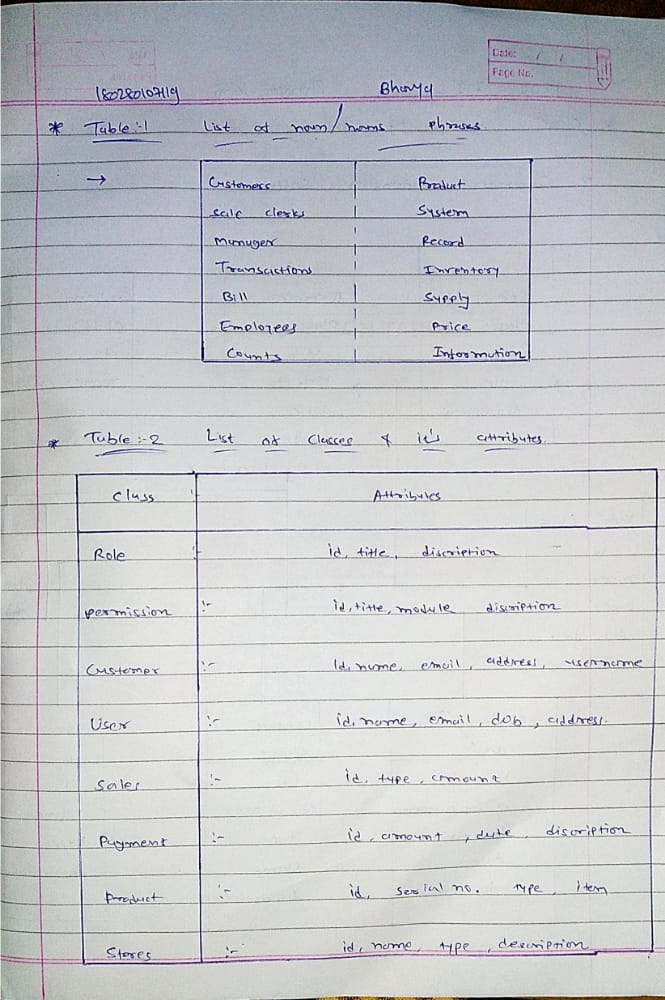 Date: / /
Page No.
180280107119 Bhavya
* Table :-1 List of noun/nouns phrases
→ Customers Product
sale clerks System
Manager Record
Transactions Inventory
Bill Supply
Employees Price
Counts Information
* Table :-2 List of Classes & it's attributes.
Class :- Attributes
Role :- id, title, discription
permission :- id, title, module discription
Customer :- Id, name, email, address, username
User :- id, name, email, dob, address.
Sales :- id, type, amount
Payment :- id, amount, date, discription
Product :- id, serial no. type, item
Stores :- id, name, type, description